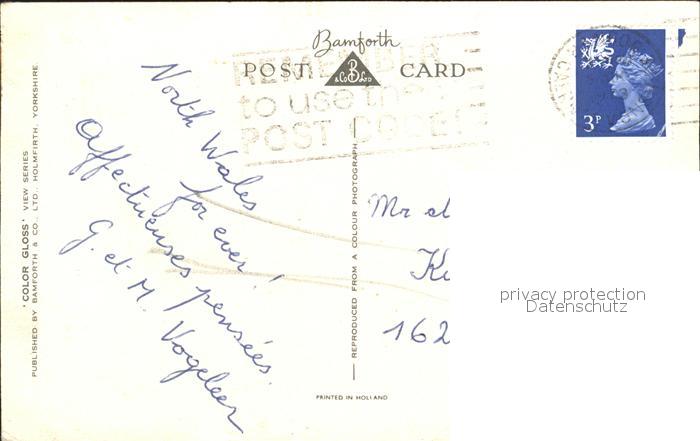 Bamforth
POST CARD
B
& Co LTD
REMEMBER
to use the
POST CODE
3P
North Wales
for ever!
Affectueuses pensées.
G. et M. Vogeleer
Mr et
162
'COLOR GLOSS' VIEW SERIES
PUBLISHED BY BAMFORTH & CO., LTD., HOLMFIRTH, YORKSHIRE
REPRODUCED FROM A COLOUR PHOTOGRAPH
PRINTED IN HOLLAND
privacy protection
Datenschutz